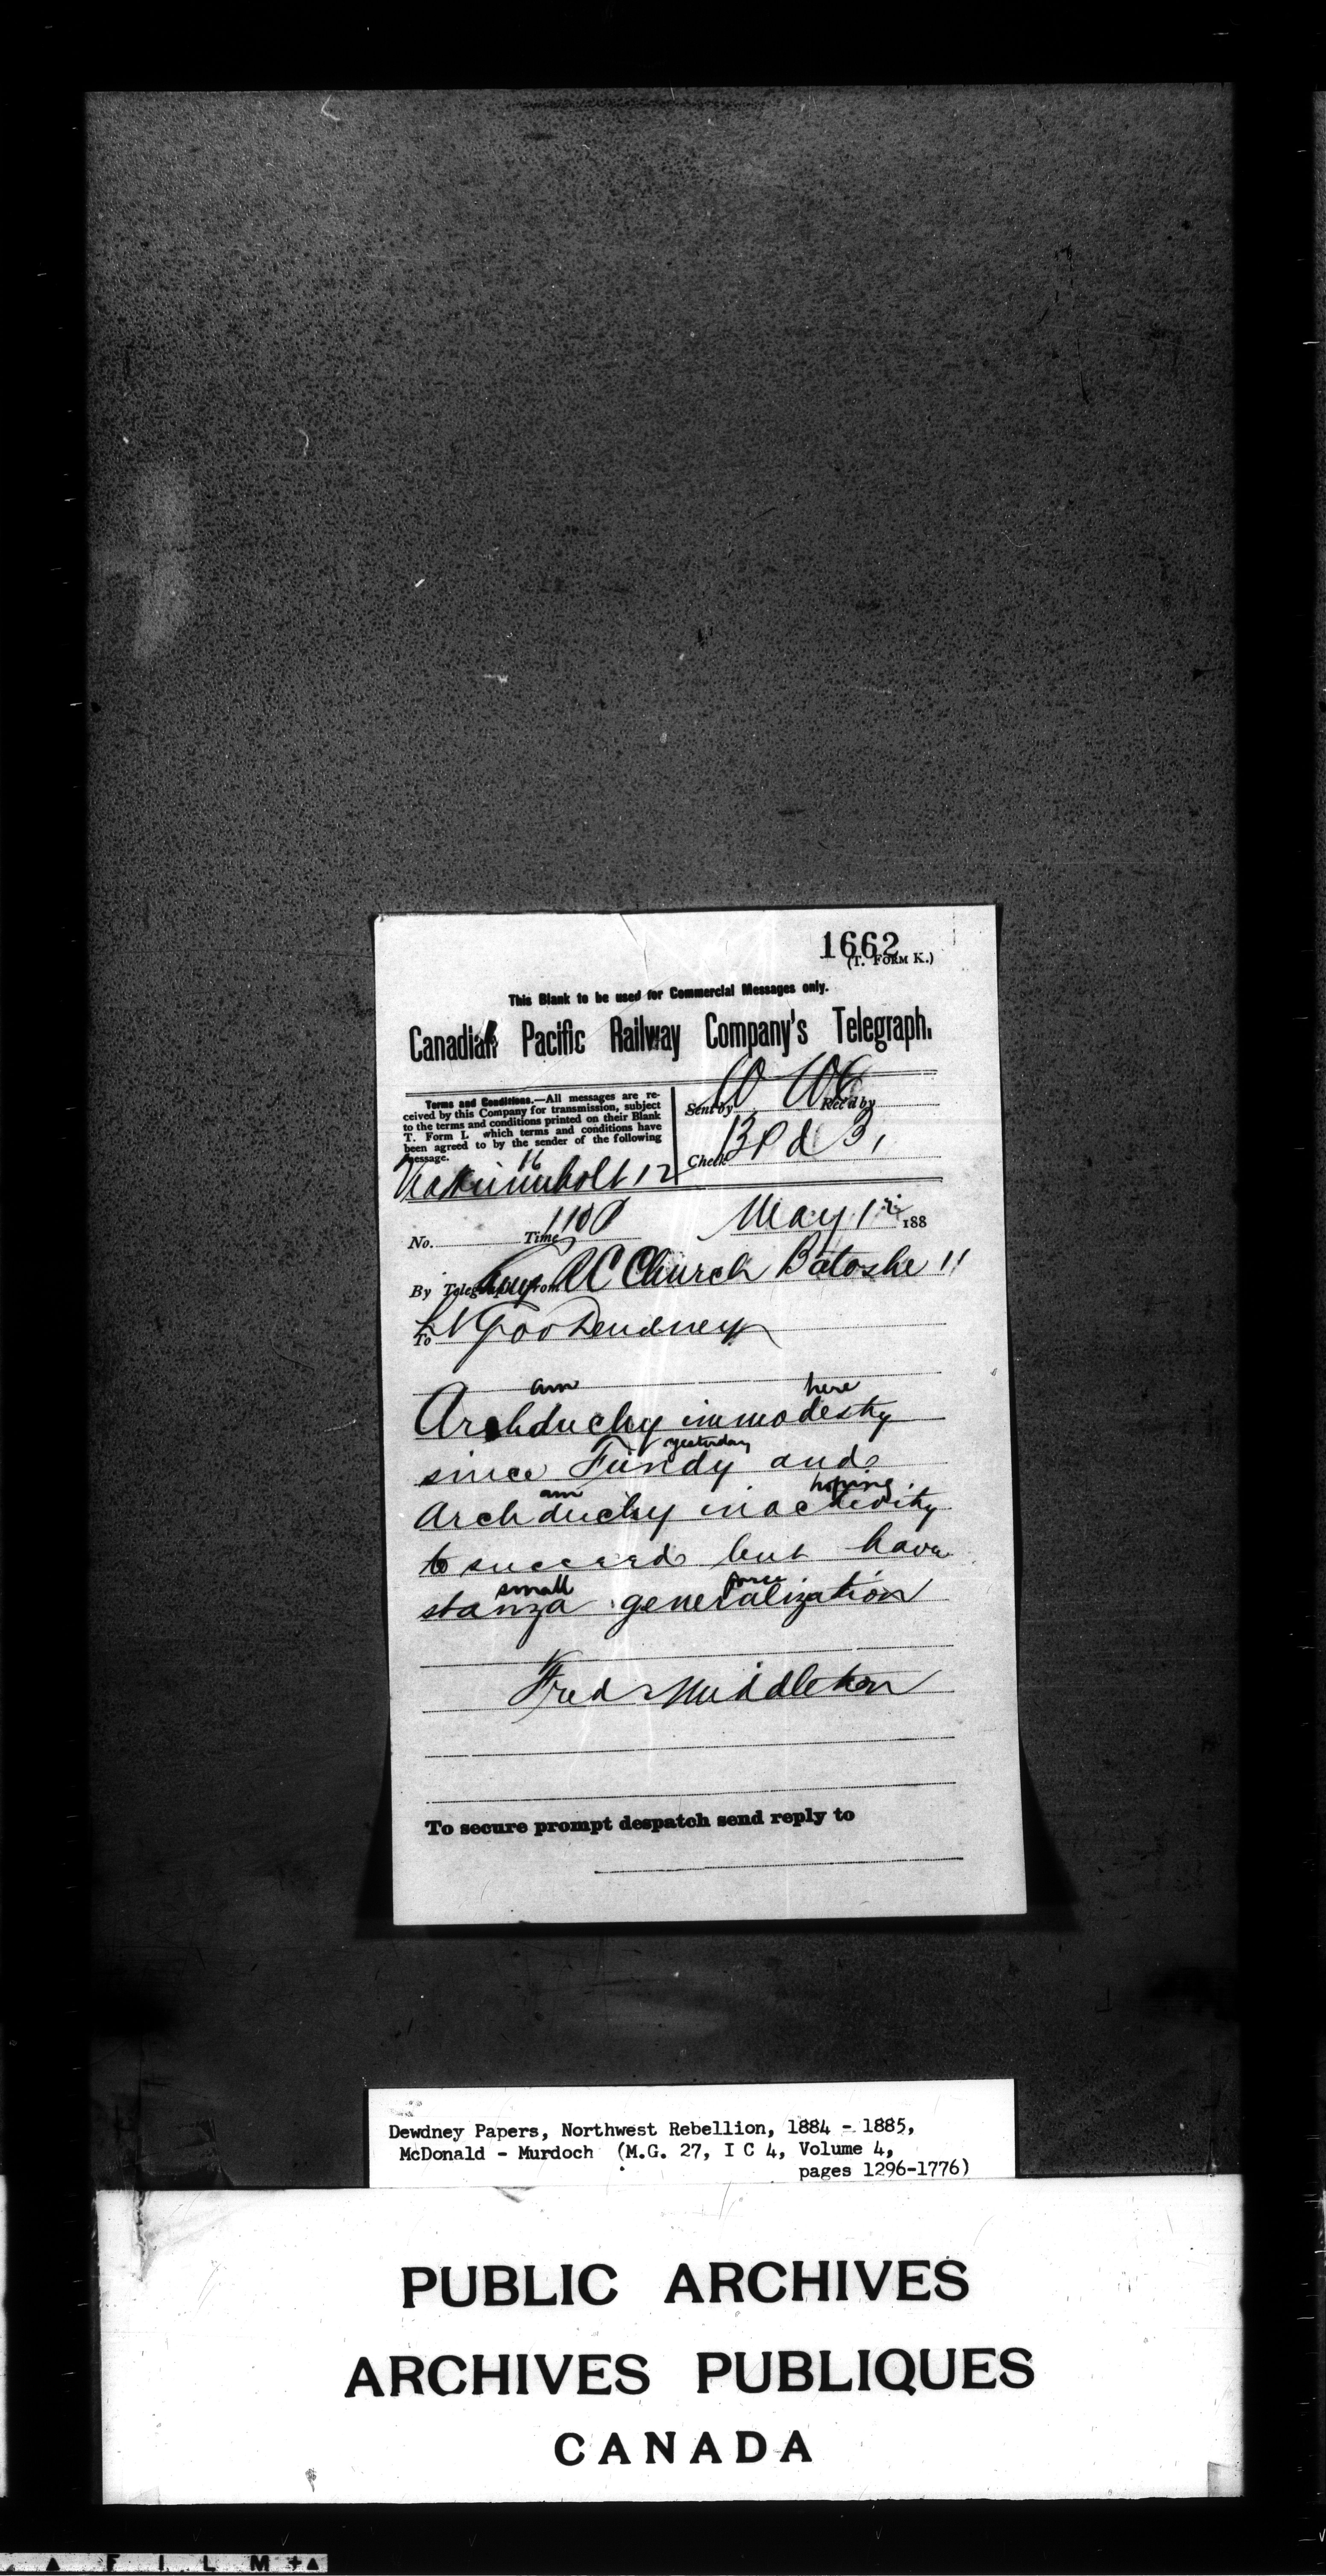 1662
(T. FORM K.)
This Blank to be used for Commercial Messages only.
Canadian Pacific Railway Company's Telegraph.
Terms and Conditions.—All messages are re-
ceived by this Company for transmission, subject
to the terms and conditions printed on their Blank
T. Form I. which terms and conditions have
been agreed to by the sender of the following
message.
Sent by Rec'd by
Check
16
12
No. Time May 12 188
By Telegraph from RC Church Batoshe 11
To Lt Gov Dewdney
am here
Archduchy immodesty
yesterday
since Fundy and
am hoping
Archduchy inactivity
to succeed but have
small force
stanza generalization
Fred Middleton
To secure prompt despatch send reply to
Dewdney Papers, Northwest Rebellion, 1884 - 1885,
McDonald - Murdoch (M.G. 27, I C 4, Volume 4,
pages 1296-1776)
PUBLIC ARCHIVES
ARCHIVES PUBLIQUES
CANADA
FILM